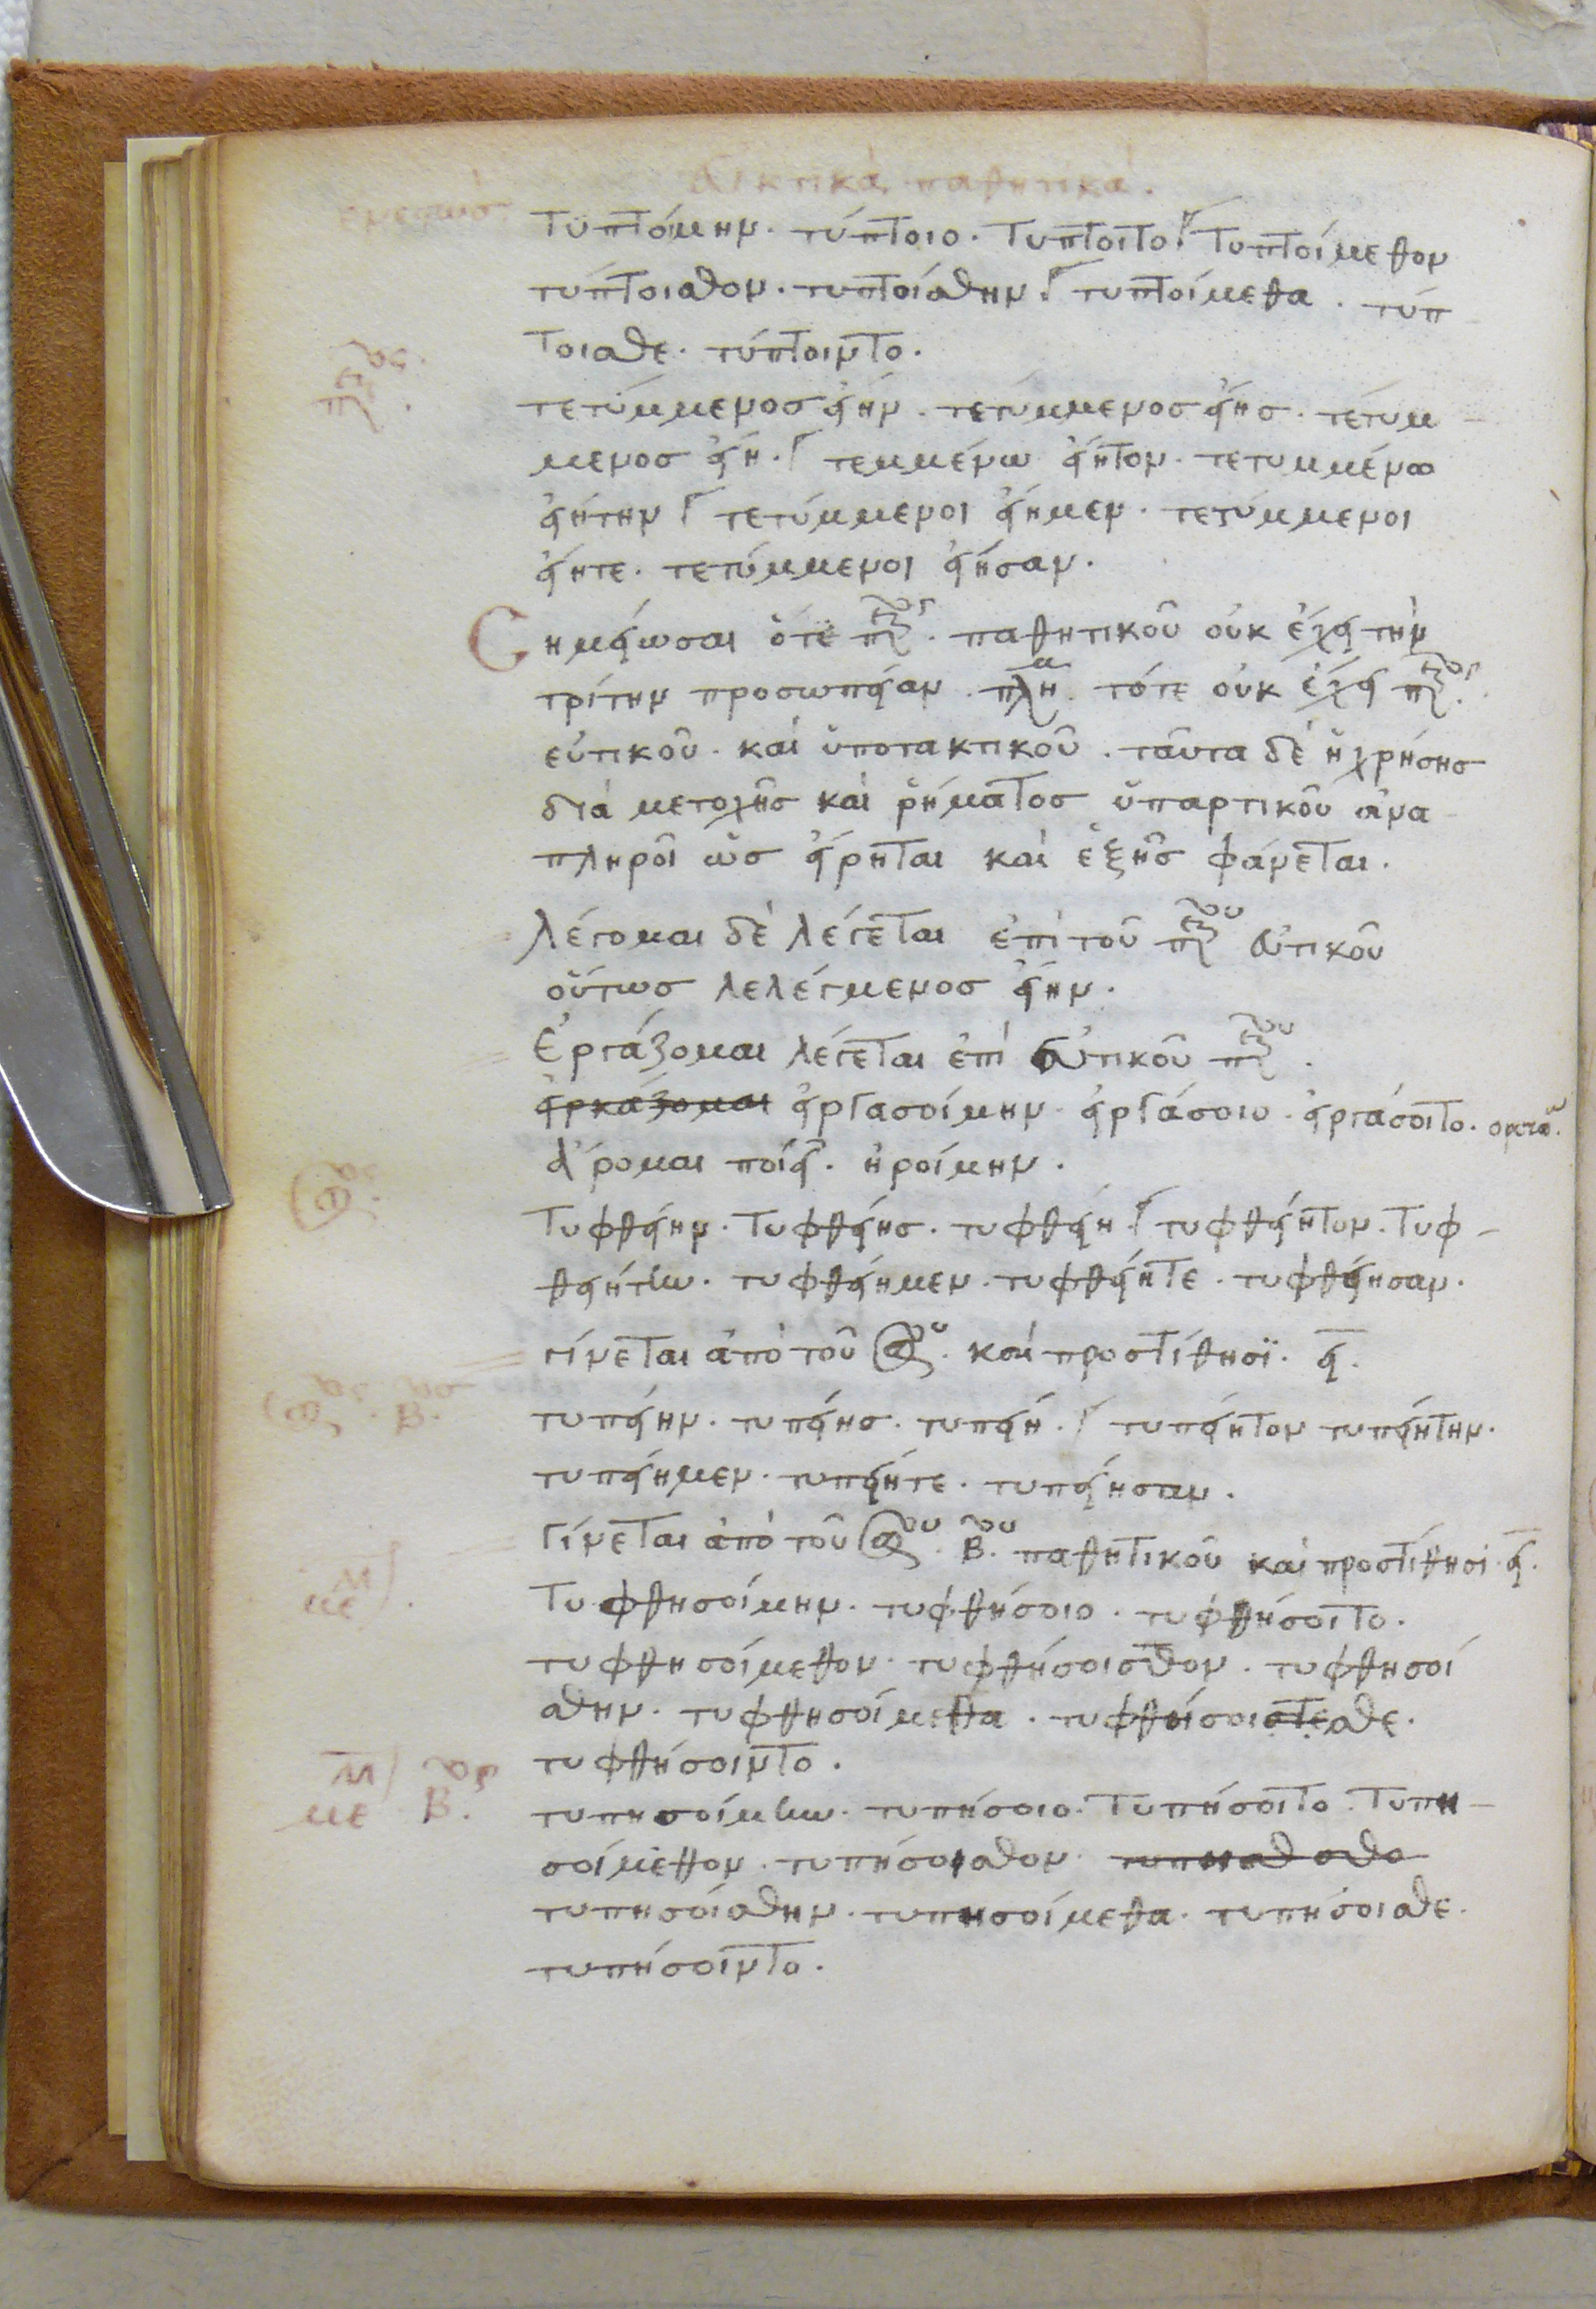 εὐκτικὰ παθητικά.
ἐνεστώς.
τϋπτόιμην. τύπτοιο. τυπτοιτο. τυπτοίμεθον
τύπτοισθον. τυπτοίσθην. τυπτοίμεθα. τύπ
τοισθε. τύπτοιντο.
τετύμμενοσ εἴην. τετύμμενοσ εἴησ. τετυμ-
μενοσ εἴη. τεμμένω εἴητον. τετυμμένω
εἰήτην τετύμμενοι εἴημεν. τετύμμενοι
εἴητε. τετύμμενοι εἴησαν.
Σημείωσαι ὅτε παθητικοῦ οὐκ ἔχει τὴν
τρίτην προσωπείαν πλη τότε οὐκ ἔχει
εὐτικοῦ. και ὑποτακτικοῦ. ταῦτα δὲ ἡ χρήσησ
διὰ μετοχῆσ καὶ ῥήματοσ ὑπαρτικοῦ ἀνα-
πληροῖ ὡσ εἴρηται καὶ ἑξῆσ φάνεται.
λέγομαι δὲ λέγεται ἐπὶ τοῦ εὐτικοῦ
οὕτωσ λελέγμενοσ εἴην.
Ἐργάζομαι λέγεται ἐπὶ εὐτικοῦ
εἰρκάζομαι εἰργασοίμην. εἰργάσοιο. εἰργάσοιτο.
αἴρομαι ποιεῖ. ἠροίμην.
Τυφθείην. τυφθείησ. τυφθείη. τυφθείητον. τυφ-
θειήτην. τυφθείημεν. τυφθείητε. τυφθείησαν.
γίνεται ἀπὸ τοῦ καὶ προστίθησϊ. ει.
τυπείην. τυπείησ. τυπείη. τυπείητον τυπείητην.
τυπείημεν. τυπείητε. τυπείησαν.
Γίνεται ἀπὸ τοῦ Β. παθητικοῦ καὶ προστίθησι. ει.
Τυφθησοίμην. τυφθήσοιο. τυφθήσοιτο.
τυφθησοίμεθον. τυφθήσοισθον. τυφθησοί
σθην. τυφθησοίμεθα. τυφθοίσοιστεσθε.
τυφθήσοιντο.
τυπησοίμην. τυπήσοιο. Τυπήσοιτο. Τυπη-
σοίμεθον. τυπήσοισθον.
τυπησοίσθην. τυπησοίμεθα. τυπήσοισθε.
τυπήσοιντο.